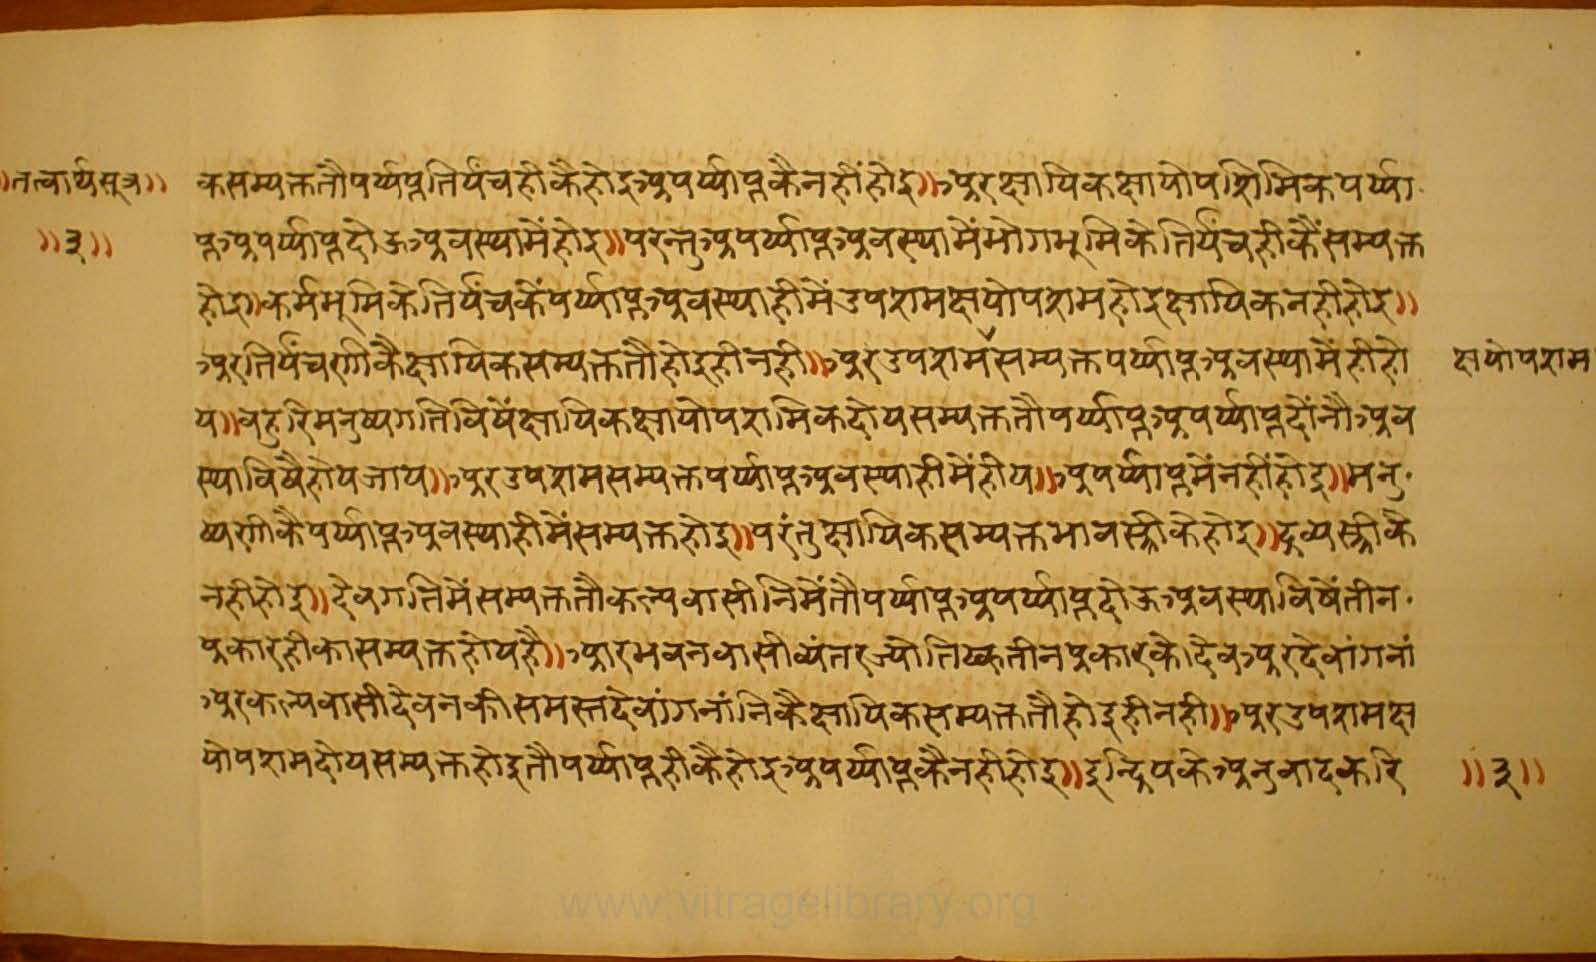 ॥तत्वार्थसूत्र॥
॥३॥
कसम्यक्ततौपर्य्यप्ततिर्यंचहीकैहोइअपर्य्याप्तकैनहींहोइ॥अरक्षायिकक्षायोपशमिकपर्य्या
प्तअपर्य्याप्तदोऊअवस्थामेंहोइ॥परन्तुअपर्य्याप्तअवस्थामेंभोगभूमिकेतिर्यंचहीकैंसम्यक्त
होइ॥कर्मभूमिकेतिर्यंचकेंपर्य्याप्तअवस्थाहीमेंउपशमक्षयोपशमहोइक्षायिकनहीहोइ॥
अरतिर्यंचणीकैक्षायिकसम्यक्ततौहोइहीनही॥अरउपशमसम्यक्तपर्य्याप्तअवस्थामेंहीहो
क्षयोपशम
य॥बहुरिमनुष्यगतिविषेंक्षायिकक्षायोपशमिकदोयसम्यक्ततौपर्य्याप्तअपर्य्याप्तदोंनौअव
स्थाविषैहोयजाय॥अरउपशमसम्यक्तपर्य्याप्तअवस्थाहीमेंहीय॥अपर्य्याप्तमेंनहींहोइ॥मनु
ष्यणीकैपर्य्याप्तअवस्थाहीमेंसम्यक्तहोइ॥परंतुक्षायिकसम्यक्तभावस्त्रीकेहोइ॥द्रव्यस्त्रीकै
नहीहोइ॥देवगतिमेंसम्यक्ततौकल्पवासीनिमेंतौपर्य्याप्तअपर्य्याप्तदोऊअवस्थाविषेंतीन
प्रकारहीकासम्यक्तहोयहै॥अरभवनवासीव्यंतरज्योतिष्कतीनप्रकारकेदेवअरदेवांगनां
अरकल्पवासीदेवनकीसमस्तदेवांगनांनिकैक्षायिकसम्यक्ततौहोइहीनही॥अरउपशमक्ष
योपशमदोयसम्यक्तहोइतौपर्य्याप्तहीकैहोइअपर्य्याप्तकैनहीहोइ॥इन्द्रियकेअनुवादकरि
॥३॥
www.vitragelibrary.org